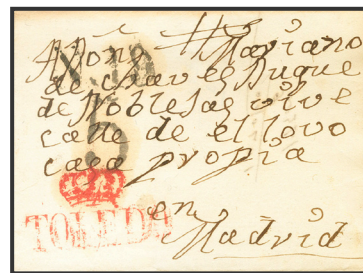 Mariano
de chaves Duque
de Noblejas vive
calle de el lovo
5
casa propia
TOLEDO
en
Madrid